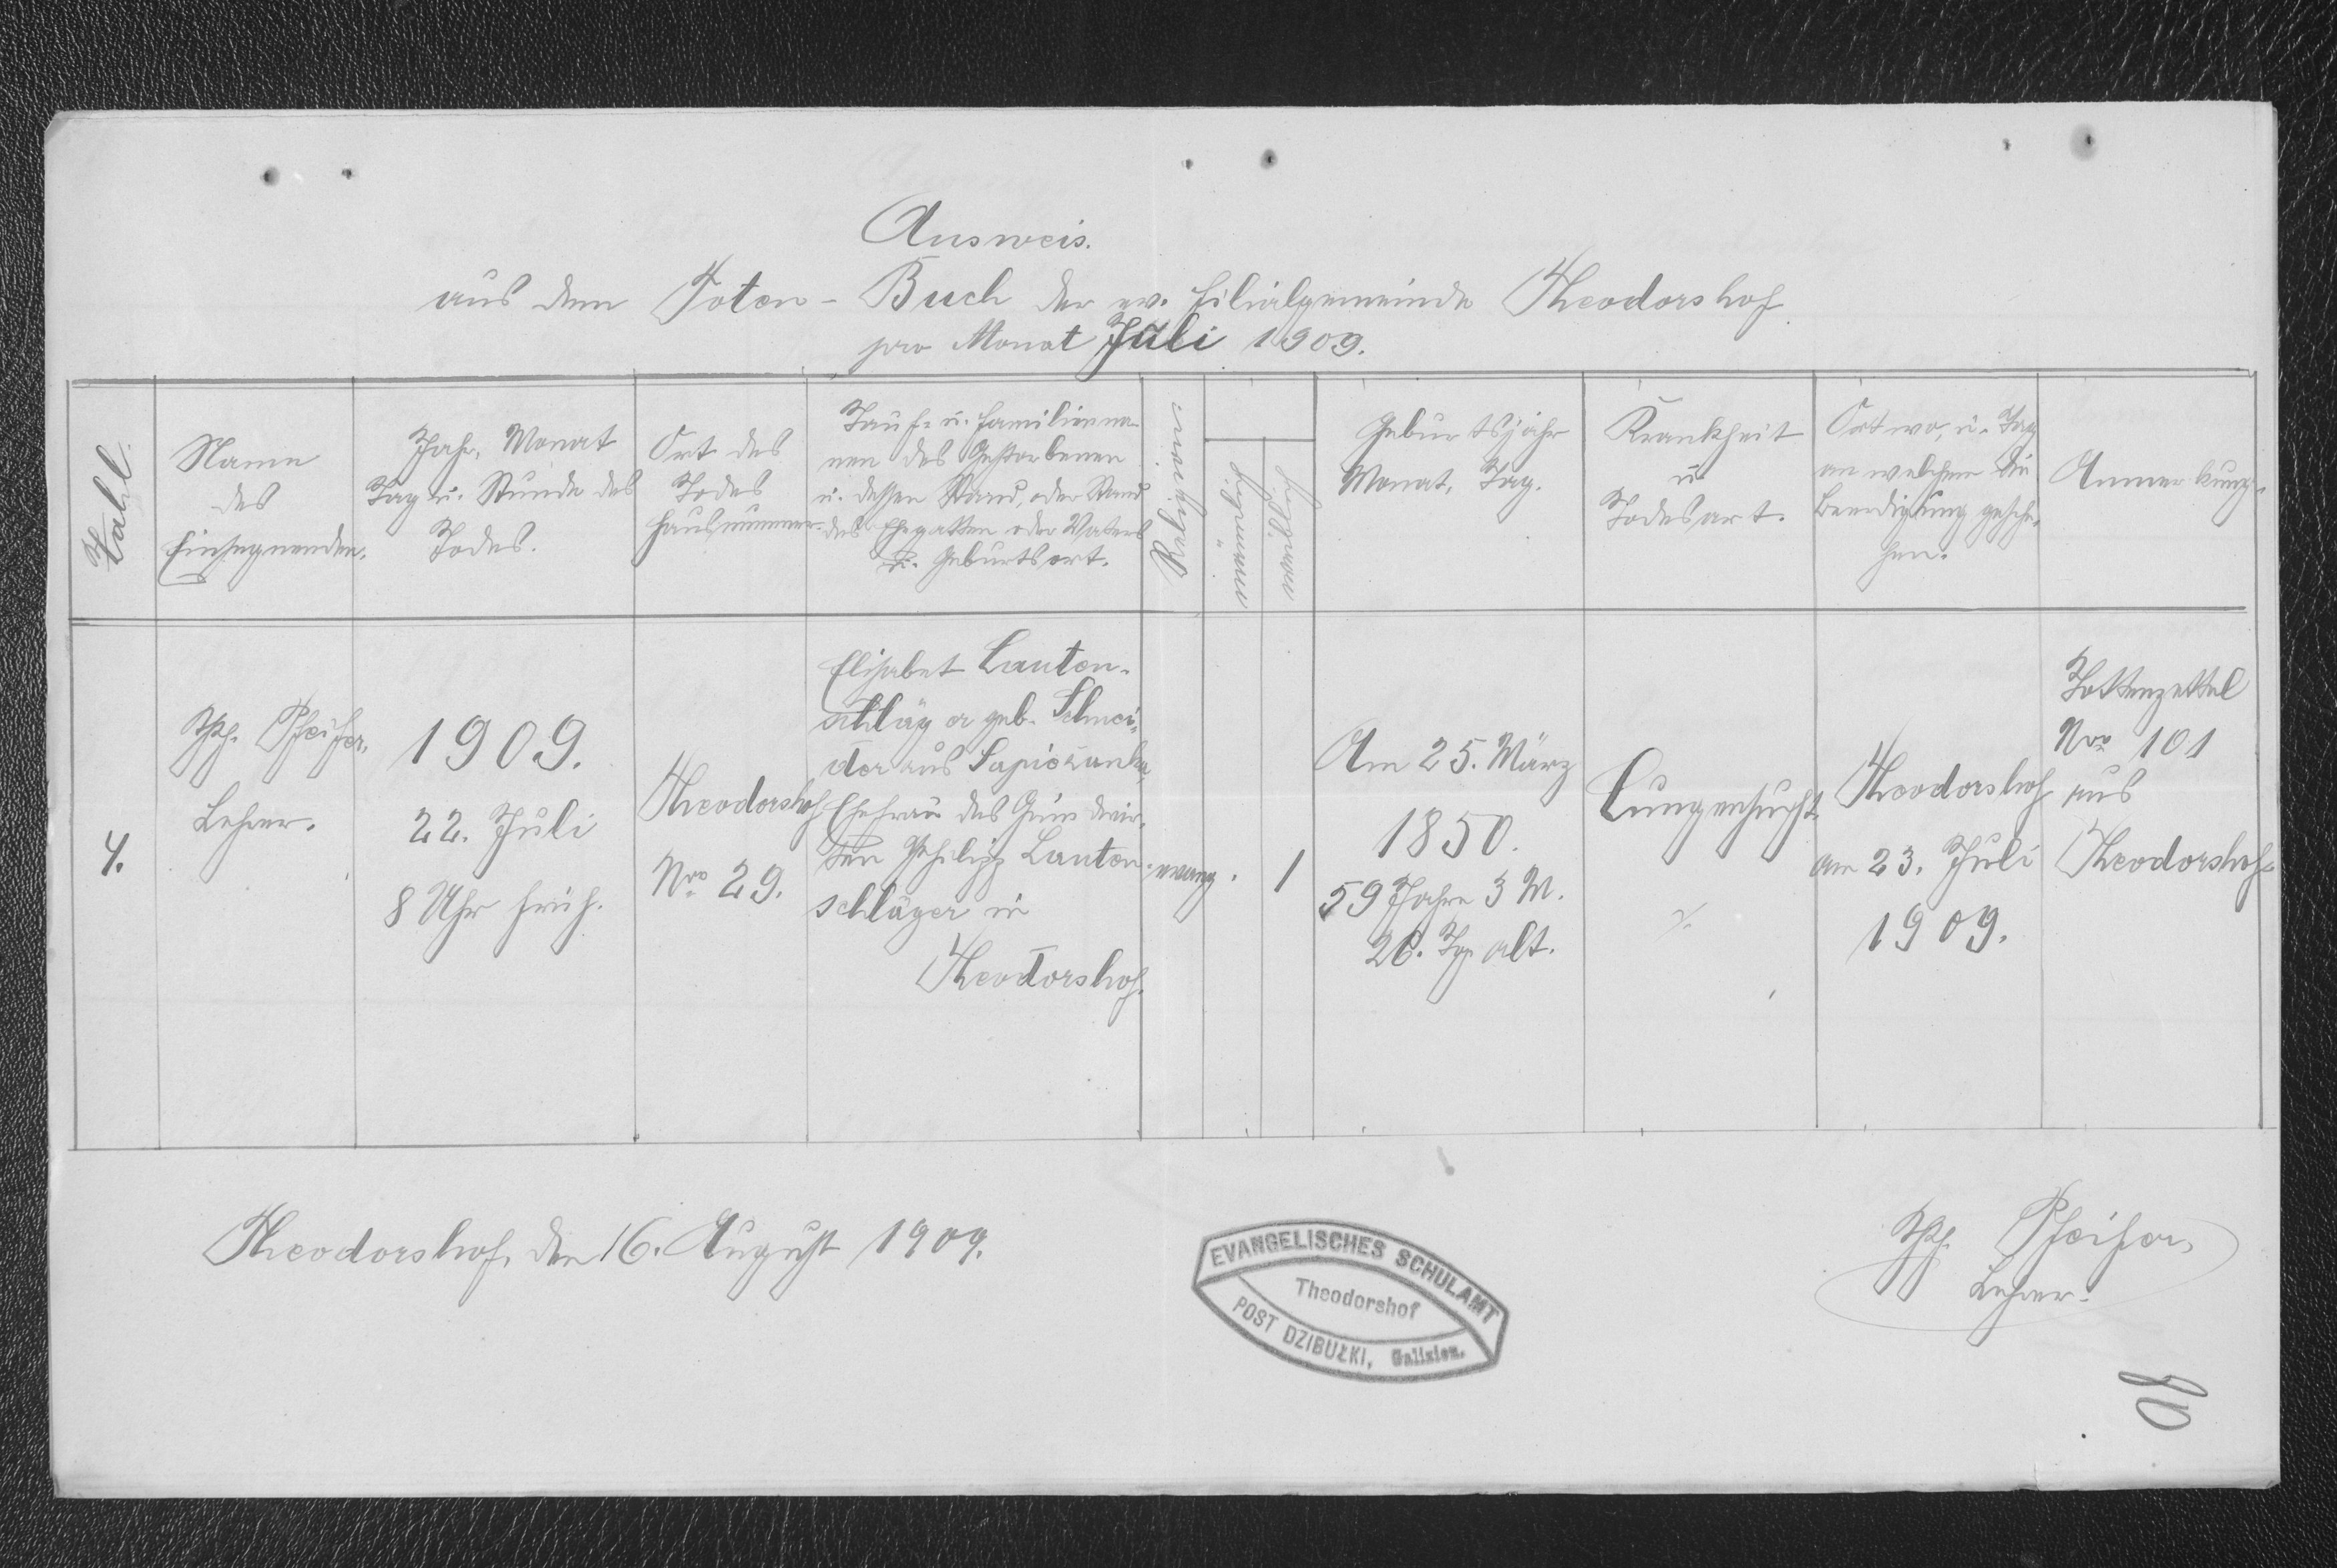 Ausweis.
aus dem Toten - Buch der ev. Filialgemeinde Theodorshof
pro Monat Juli 1909.
Zahl.
Name
des
Einsegnenden.
Jahr, Monat
Tag u. Stunde des
Todes.
Ort des
Todes
Hausnummer.
Tauf= u. Familienna-
men des Gestorbenen
u. dessen Stand, oder Stand
des Ehegatten oder Vaters
u. Geburtsort.
Religion
männlich
weiblich
Geburtsjahr
Monat, Tag.
Krankheit
u
Todesart.
Ort wo, u. Tag
an welchem die
Beerdigung gesche-
hen.
Anmerkung.
4.
Pfeifer,
Lehrer.
1909.
22. Juli
8 Uhr früh.
Theodorshof
Nro 29.
Elisabet Lauten-
schläger geb. Schnei-
der aus Sapiezanka,
Ehefrau des Grundwir-
ten Philipp Lauten-
schläger in
Theodorshof.
evang.
1
Am 25. März
1850.
59 Jahre 3 M.
26. Tge alt.
Lungensucht.
Theodorshof
am 23. Juli
1909.
Tottenzettel
Nro 101
aus
Theodorshof.
Theodorshof, den 16. August 1909.
EVANGELISCHES SCHULAMT
Theodorshof
POST DZIBUŁKI, Galizien.
Pfeifer,
Lehrer.